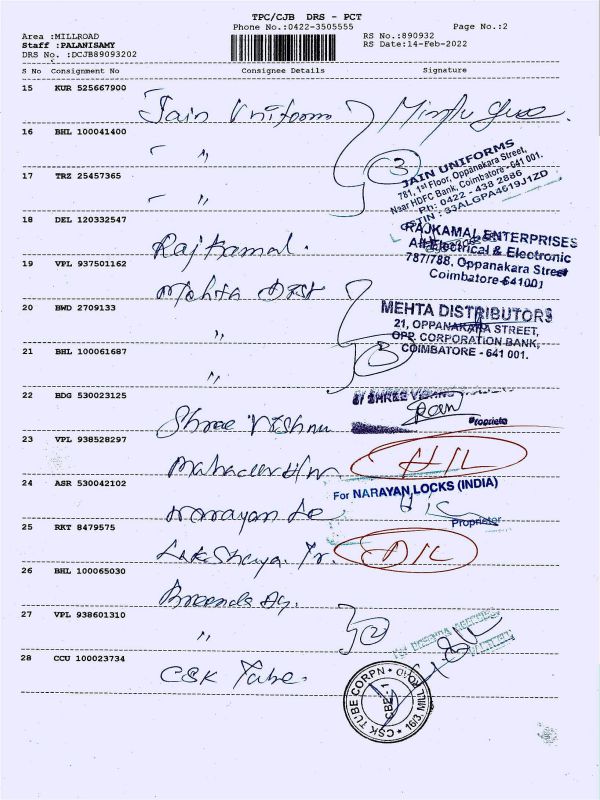 TPC/CJB DRS - PCT
Phone No.:0422-3505555
Page No.:2
Area :MILLROAD
RS No.:890932
Staff :PALANISAMY
RS Date:14-Feb-2022
DRS No. :DCJB89093202
S No Consignment No Consignee Details Signature
15 KUR 525667900
Jain Uniform
16 BHL 100041400
〃
3
JAIN UNIFORMS
781, 1st Floor, Oppanakara Street,
Near HDFC Bank, Coimbatore - 641 001.
Ph: 0422 - 438 2886
GSTIN : 33ALGPA4619J1ZD
17 TRZ 25457365
〃
18 DEL 120332547
Rajkamal.
RAJKAMAL ENTERPRISES
All Electrical & Electronic
787/788, Oppanakara Street
Coimbatore-641001
19 VPL 937501162
Mehta Dist
20 BWD 2709133
〃
MEHTA DISTRIBUTORS
21, OPPANAKARA STREET,
OPP. CORPORATION BANK,
COIMBATORE - 641 001.
21 BHL 100061687
〃
3
22 BDG 530023125
Shree Vishnu
Proprietor
23 VPL 938528297
Mahadev H/W
24 ASR 530042102
Narayan Lo
For NARAYAN LOCKS (INDIA)
Proprietor
25 RKT 8479575
Lakshaya Tr.
26 BHL 100065030
27 VPL 938601310
〃
2
28 CCU 100023734
CSK Tube.
CSK TUBE CORPN
16/3, MILL ROAD
CBE - 1